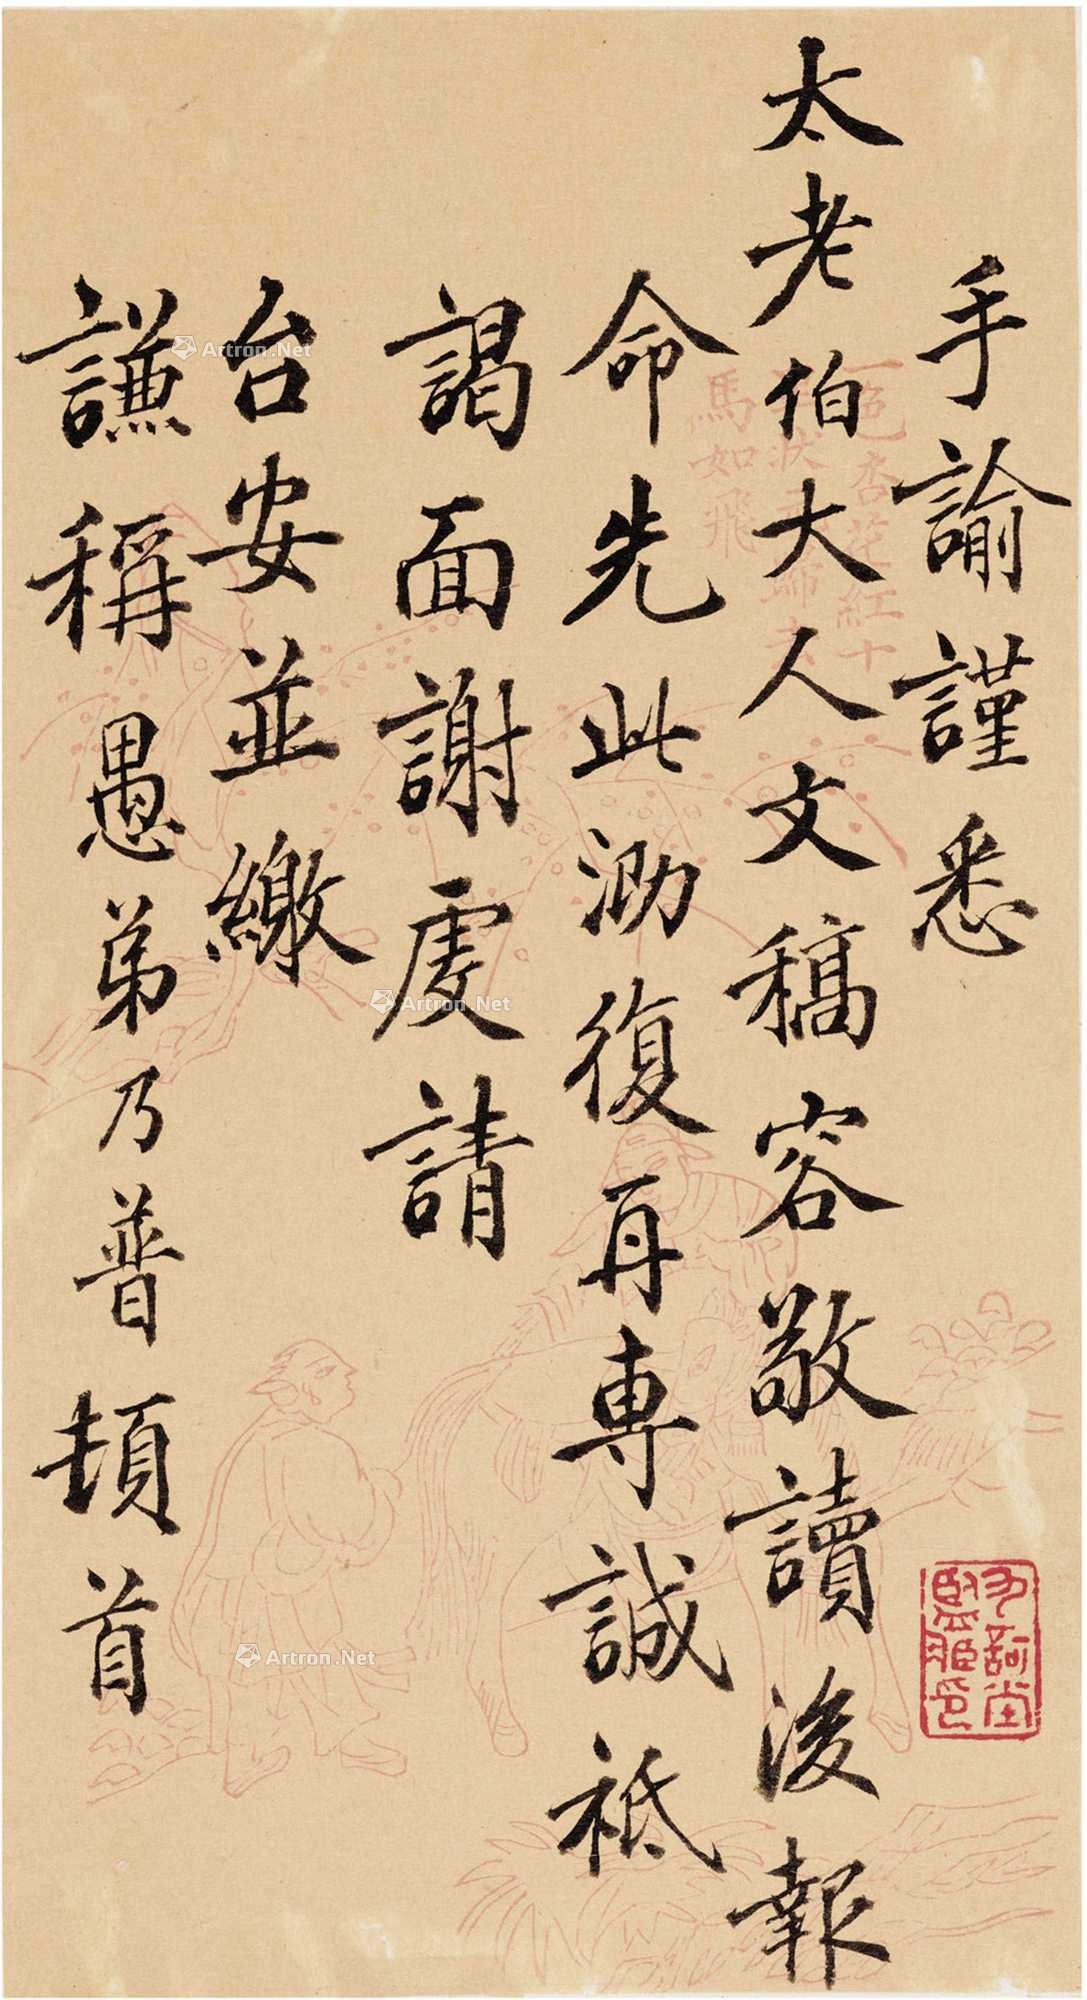 手諭謹悉
太老伯大人文稿容敬讀後報
命先此泐復再專誠祗
謁面謝虔請
台安並繳
謙稱 愚弟乃普頓首
一色杏花紅十
里狀元歸去
馬如飛
Artron.Net
Artron.Net
Artron.Net